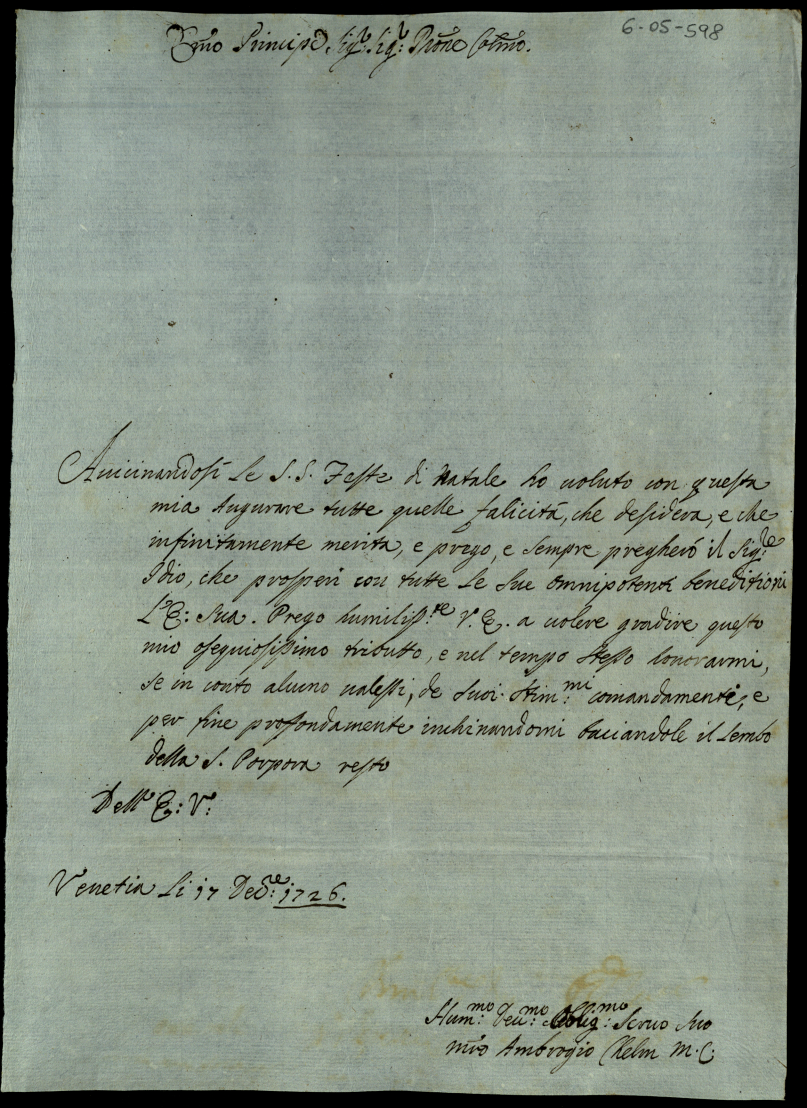 6-05-598
Emo Principe, Sigr: Sigr: Prone Colmo.
Avicinandosi le S.S. Feste di Natale ho voluto con questa
mia Augurare tutte quelle falicità, che desidera, e che
infinitamente merita, e prego, e sempre pregherò il Sigre:
Idio, che prosperi con tutte le sue omnipotenti beneditioni
L'E: Sua. Prego humiliss:re V.E. a volere gradire questo
mio osequiosissimo tributto, e nel tempo stesso honorarmi,
se in conto alcuno valessi, de suoi stim:mi comandamenti, e
per fine profondamente inchinandomi baciandole il lembo
della S. Porpora resto
Dell' E: V:
Venetia li 17 Decre: 1726.
Hum:mo Dev:mo Oblig:mo Servo suo
mro Ambrogio Chelm M.C: